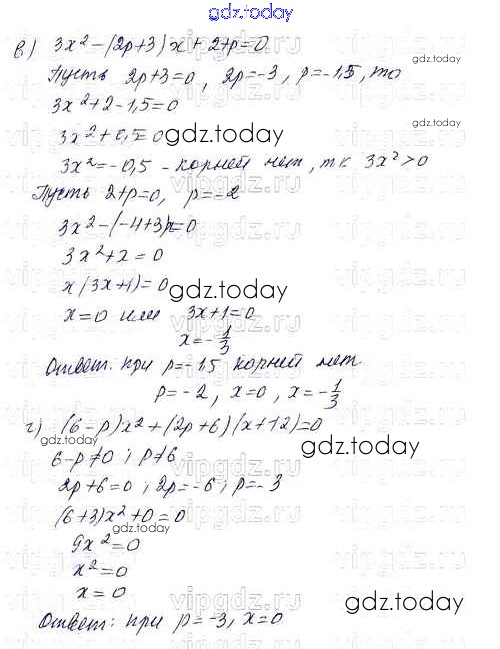 gdz.today
в) 3x² - (2p+3)x + 2+p=0
Пусть 2p+3=0, 2p=-3, p=-1,5, то
3x²+2-1,5=0
3x²+0,5=0
gdz.today
3x²=-0,5 - корней нет, т.к 3x²>0
Пусть 2+p=0, p=-2
3x²-(-4+3)x=0
3x²+x=0
x(3x+1)=0
gdz.today
x=0 или 3x+1=0
x=-1/3
Ответ: при p=-1,5 корней нет
p=-2, x=0, x=-1/3
г) (6-p)x²+(2p+6)(x+12)=0
6-p≠0; p≠6
gdz.today
2p+6=0; 2p=-6; p=-3
(6+3)x²+0=0
gdz.today
9x²=0
x²=0
x=0
gdz.today
Ответ: при p=-3, x=0
vipgdz.ru